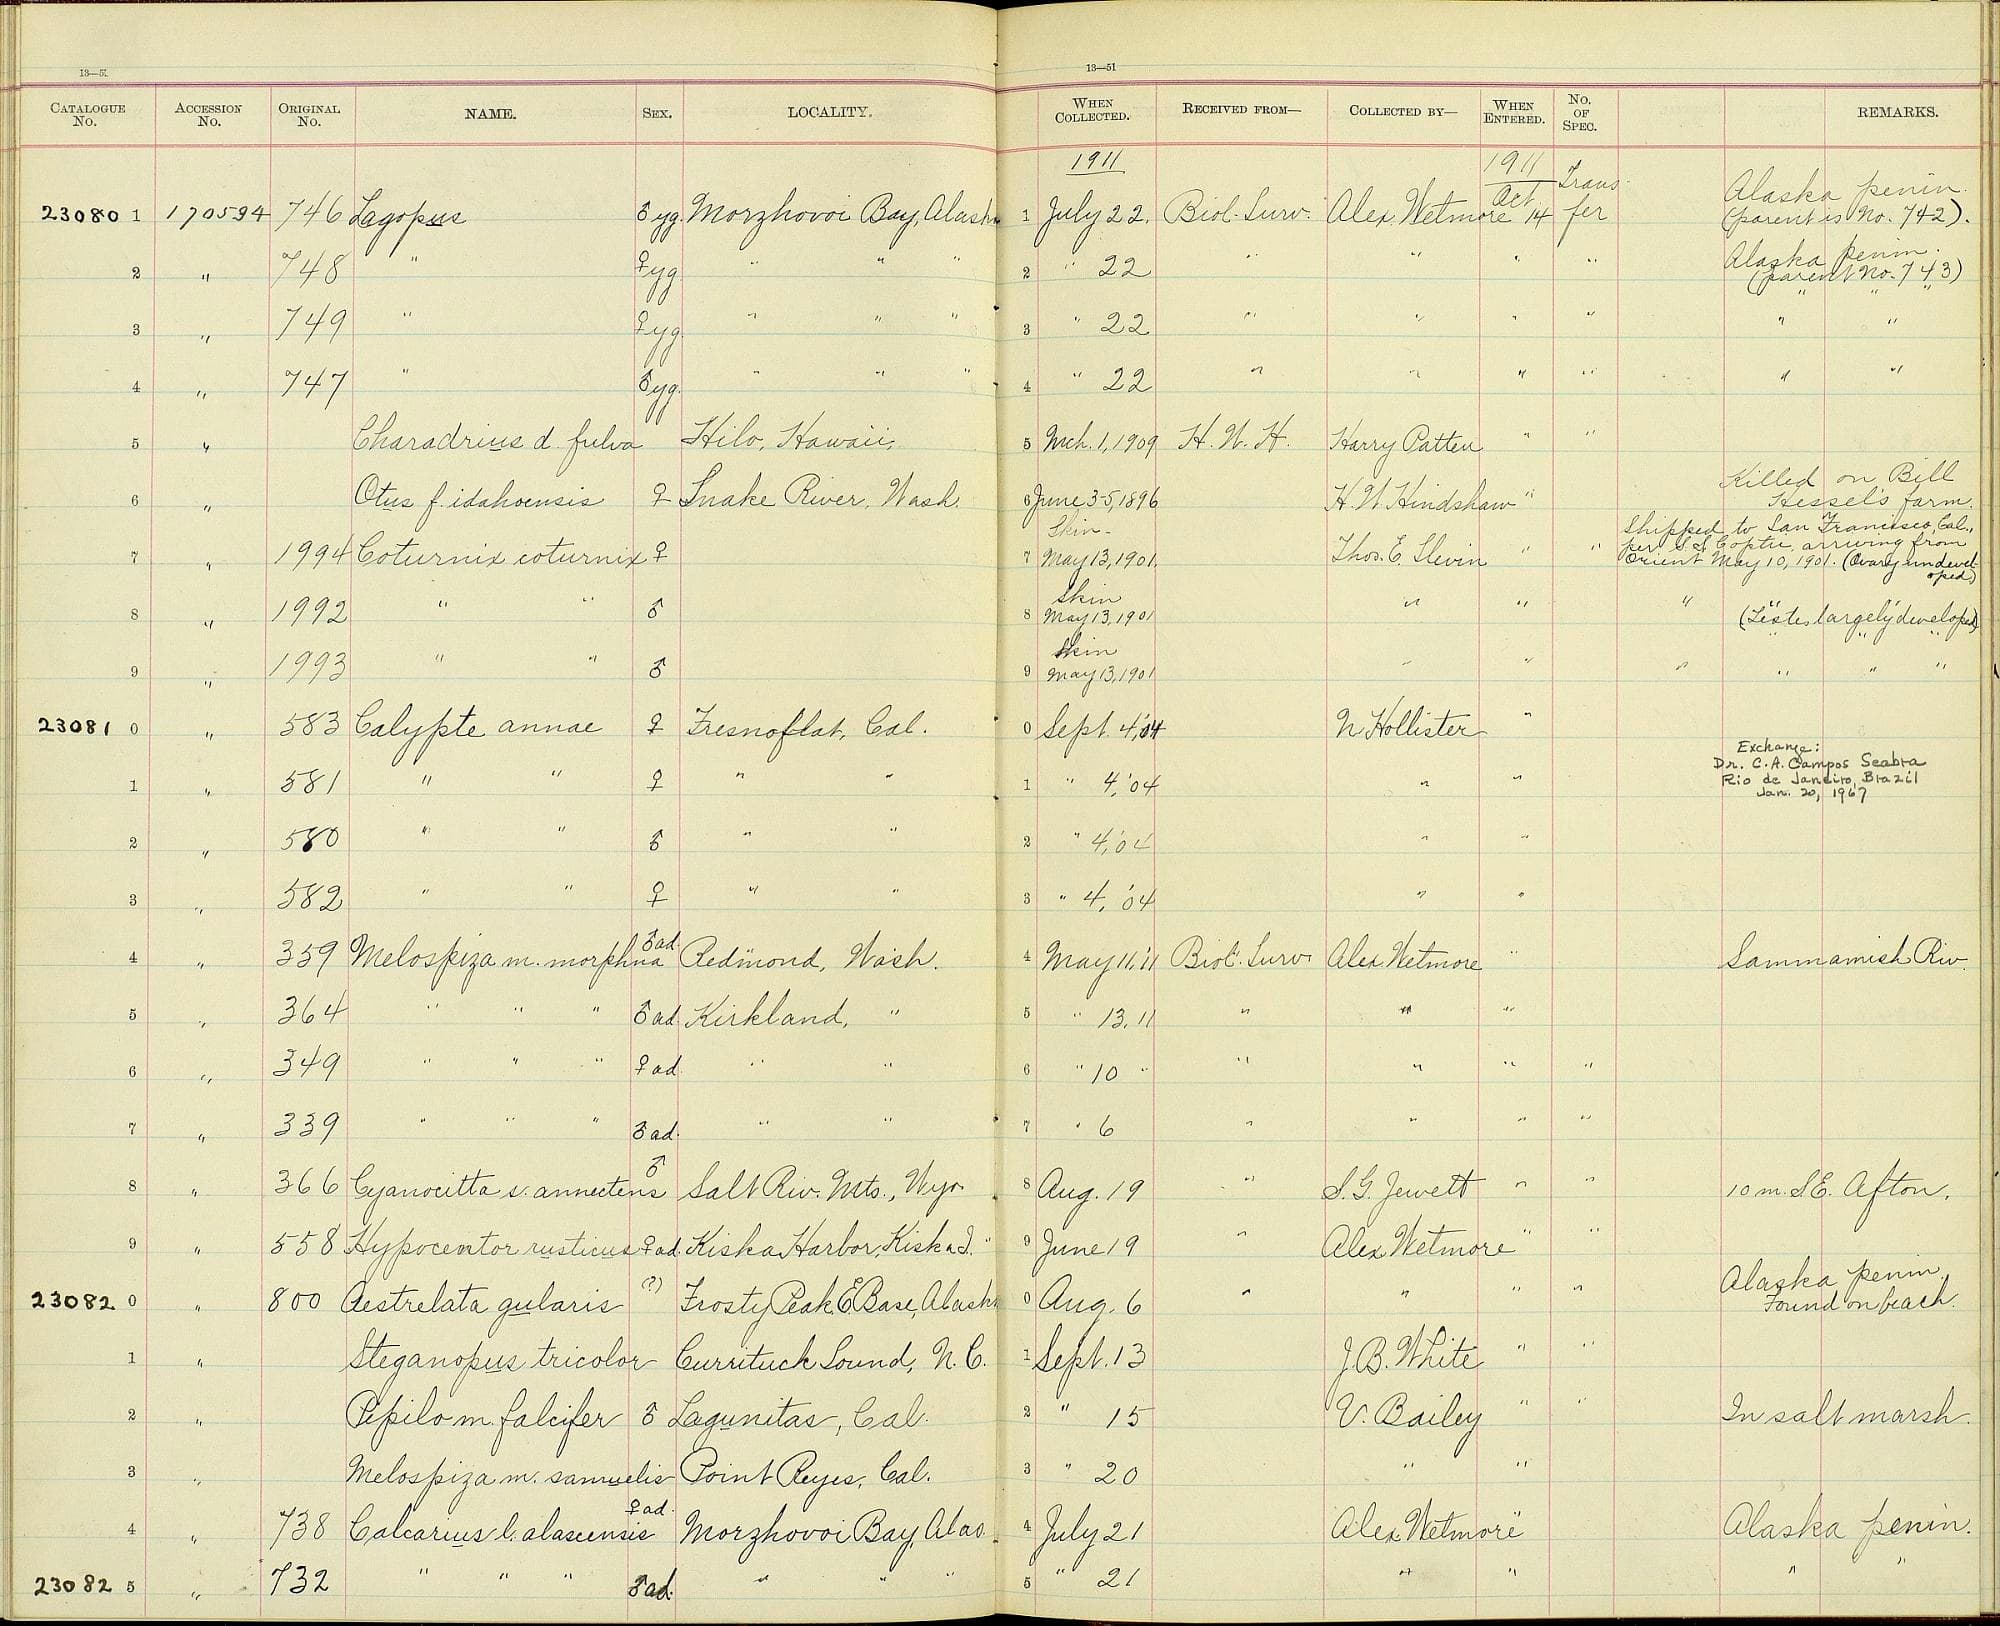 13—51
13—51
CATALOGUE No. ACCESSION No. ORIGINAL No. NAME. SEX. LOCALITY. WHEN COLLECTED. RECEIVED FROM— COLLECTED BY— WHEN ENTERED. No. OF SPEC. REMARKS.
1911 1911
23080 1 170594 746 Lagopus ♂ yg. Morzhovoi Bay, Alaska 1 July 22. Biol. Surv. Alex Wetmore Oct 14 Transfer Alaska penin. (parent is No. 742).
2 " 748 " ♀ yg. " " " 2 " 22 " " " " Alaska penin. (parent No. 743)
3 " 749 " ♀ yg. " " " 3 " 22 " " " " " "
4 " 747 " ♂ yg. " " " 4 " 22 " " " " " "
5 " Charadrius d. fulva Hilo, Hawaii, 5 Mch. 1, 1909 H. W. H. Harry Patten " "
6 " Otus f. idahoensis ♀ Snake River, Wash. 6 June 3-5, 1896 H. W. Hindshaw " Killed on Bill Hessel's farm.
7 " 1994 Coturnix coturnix ♀ 7 Skin- May 13, 1901. Thos. E. Slevin " " Shipped to San Francisco, Cal., per S.S. Coptic, arriving from Orient May 10, 1901. (Ovary undeveloped)
8 " 1992 " " ♂ 8 Skin May 13, 1901 " " " " (Testes largely developed)
9 " 1993 " " ♂ 9 Skin May 13, 1901 " " " " " "
23081 0 " 583 Calypte annae ♀ Fresnoflat, Cal. 0 Sept. 4, '04 N Hollister "
1 " 581 " " ♀ " " 1 " 4, '04 " " Exchange: Dr. C. A. Campos Seabra Rio de Janeiro, Brazil Jan. 20, 1967
2 " 580 " " ♂ " " 2 " 4, '04 " "
3 " 582 " " ♀ " " 3 " 4, '04 " "
4 " 359 Melospiza m. morphna ♂ ad. Redmond, Wash. 4 May 11, '11 Biol. Surv. Alex Wetmore " Sammamish Riv.
5 " 364 " " " ♂ ad. Kirkland, " 5 " 13, 11 " " "
6 " 349 " " " ♀ ad. " " 6 " 10 " " " " "
7 " 339 " " " ♂ ad. " " 7 " 6 " " " "
8 " 366 Cyanocitta s. annectens ♂ Salt Riv. Mts., Wyo. 8 Aug. 19 " S. G. Jewett " " 10 m. S.E. Afton.
9 " 558 Hypocentor rusticus ♀ ad. Kiska Harbor, Kiska I. " 9 June 19 " Alex Wetmore " "
23082 0 " 800 Aestrelata gularis (?) Frosty Peak, E. Base, Alaska 0 Aug. 6 " " " " Alaska penin. Found on beach.
1 " Steganopus tricolor Currituck Sound, N. C. 1 Sept. 13 J. B. White " "
2 " Pipilo m. falcifer ♂ Lagunitas, Cal. 2 " 15 V. Bailey " " In salt marsh.
3 " Melospiza m. samuelis Point Reyes, Cal. 3 " 20 " "
4 " 738 Calcarius l. alascensis ♀ ad. Morzhovoi Bay, Alas. 4 July 21 Alex Wetmore " Alaska penin.
23082 5 " 732 " " " ♂ ad. " " " 5 " 21 " " " "